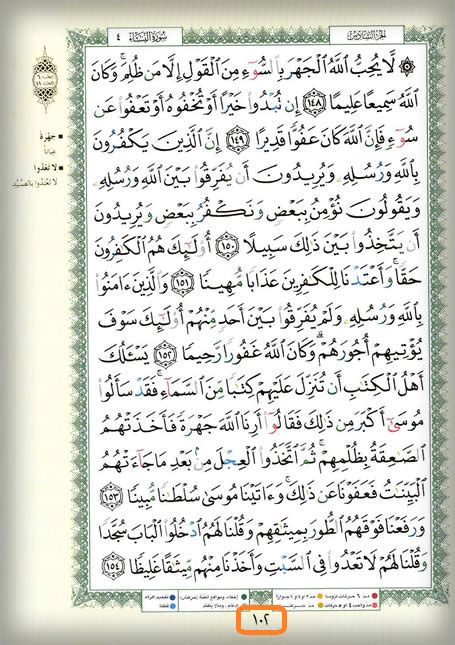 الجزء السادس
سورة النساء ٤
۞ لَّا يُحِبُّ ٱللَّهُ ٱلْجَهْرَ بِٱلسُّوٓءِ مِنَ ٱلْقَوْلِ إِلَّا مَن ظُلِمَ ۚ وَكَانَ
ٱللَّهُ سَمِيعًا عَلِيمًا ١٤٨ إِن تُبْدُوا۟ خَيْرًا أَوْ تُخْفُوهُ أَوْ تَعْفُوا۟ عَن
سُوٓءٍ فَإِنَّ ٱللَّهَ كَانَ عَفُوًّا قَدِيرًا ١٤٩ إِنَّ ٱلَّذِينَ يَكْفُرُونَ
بِٱللَّهِ وَرُسُلِهِۦ وَيُرِيدُونَ أَن يُفَرِّقُوا۟ بَيْنَ ٱللَّهِ وَرُسُلِهِۦ
وَيَقُولُونَ نُؤْمِنُ بِبَعْضٍ وَنَكْفُرُ بِبَعْضٍ وَيُرِيدُونَ
أَن يَتَّخِذُوا۟ بَيْنَ ذَٰلِكَ سَبِيلًا ١٥٠ أُو۟لَٰٓئِكَ هُمُ ٱلْكَٰفِرُونَ
حَقًّا ۚ وَأَعْتَدْنَا لِلْكَٰفِرِينَ عَذَابًا مُّهِينًا ١٥١ وَٱلَّذِينَ ءَامَنُوا۟
بِٱللَّهِ وَرُسُلِهِۦ وَلَمْ يُفَرِّقُوا۟ بَيْنَ أَحَدٍ مِّنْهُمْ أُو۟لَٰٓئِكَ سَوْفَ
يُؤْتِيهِمْ أُجُورَهُمْ ۗ وَكَانَ ٱللَّهُ غَفُورًا رَّحِيمًا ١٥٢ يَسْـَٔلُكَ
أَهْلُ ٱلْكِتَٰبِ أَن تُنَزِّلَ عَلَيْهِمْ كِتَٰبًا مِّنَ ٱلسَّمَآءِ ۚ فَقَدْ سَأَلُوا۟
مُوسَىٰٓ أَكْبَرَ مِن ذَٰلِكَ فَقَالُوٓا۟ أَرِنَا ٱللَّهَ جَهْرَةً فَأَخَذَتْهُمُ
ٱلصَّٰعِقَةُ بِظُلْمِهِمْ ۚ ثُمَّ ٱتَّخَذُوا۟ ٱلْعِجْلَ مِنۢ بَعْدِ مَا جَآءَتْهُمُ
ٱلْبَيِّنَٰتُ فَعَفَوْنَا عَن ذَٰلِكَ ۚ وَءَاتَيْنَا مُوسَىٰ سُلْطَٰنًا مُّبِينًا ١٥٣
وَرَفَعْنَا فَوْقَهُمُ ٱلطُّورَ بِمِيثَٰقِهِمْ وَقُلْنَا لَهُمُ ٱدْخُلُوا۟ ٱلْبَابَ سُجَّدًا
وَقُلْنَا لَهُمْ لَا تَعْدُوا۟ فِى ٱلسَّبْتِ وَأَخَذْنَا مِنْهُم مِّيثَٰقًا غَلِيظًا ١٥٤
جهرة
عيانا
لا تعدوا
لا تعتدوا بالصيد
١٠٢